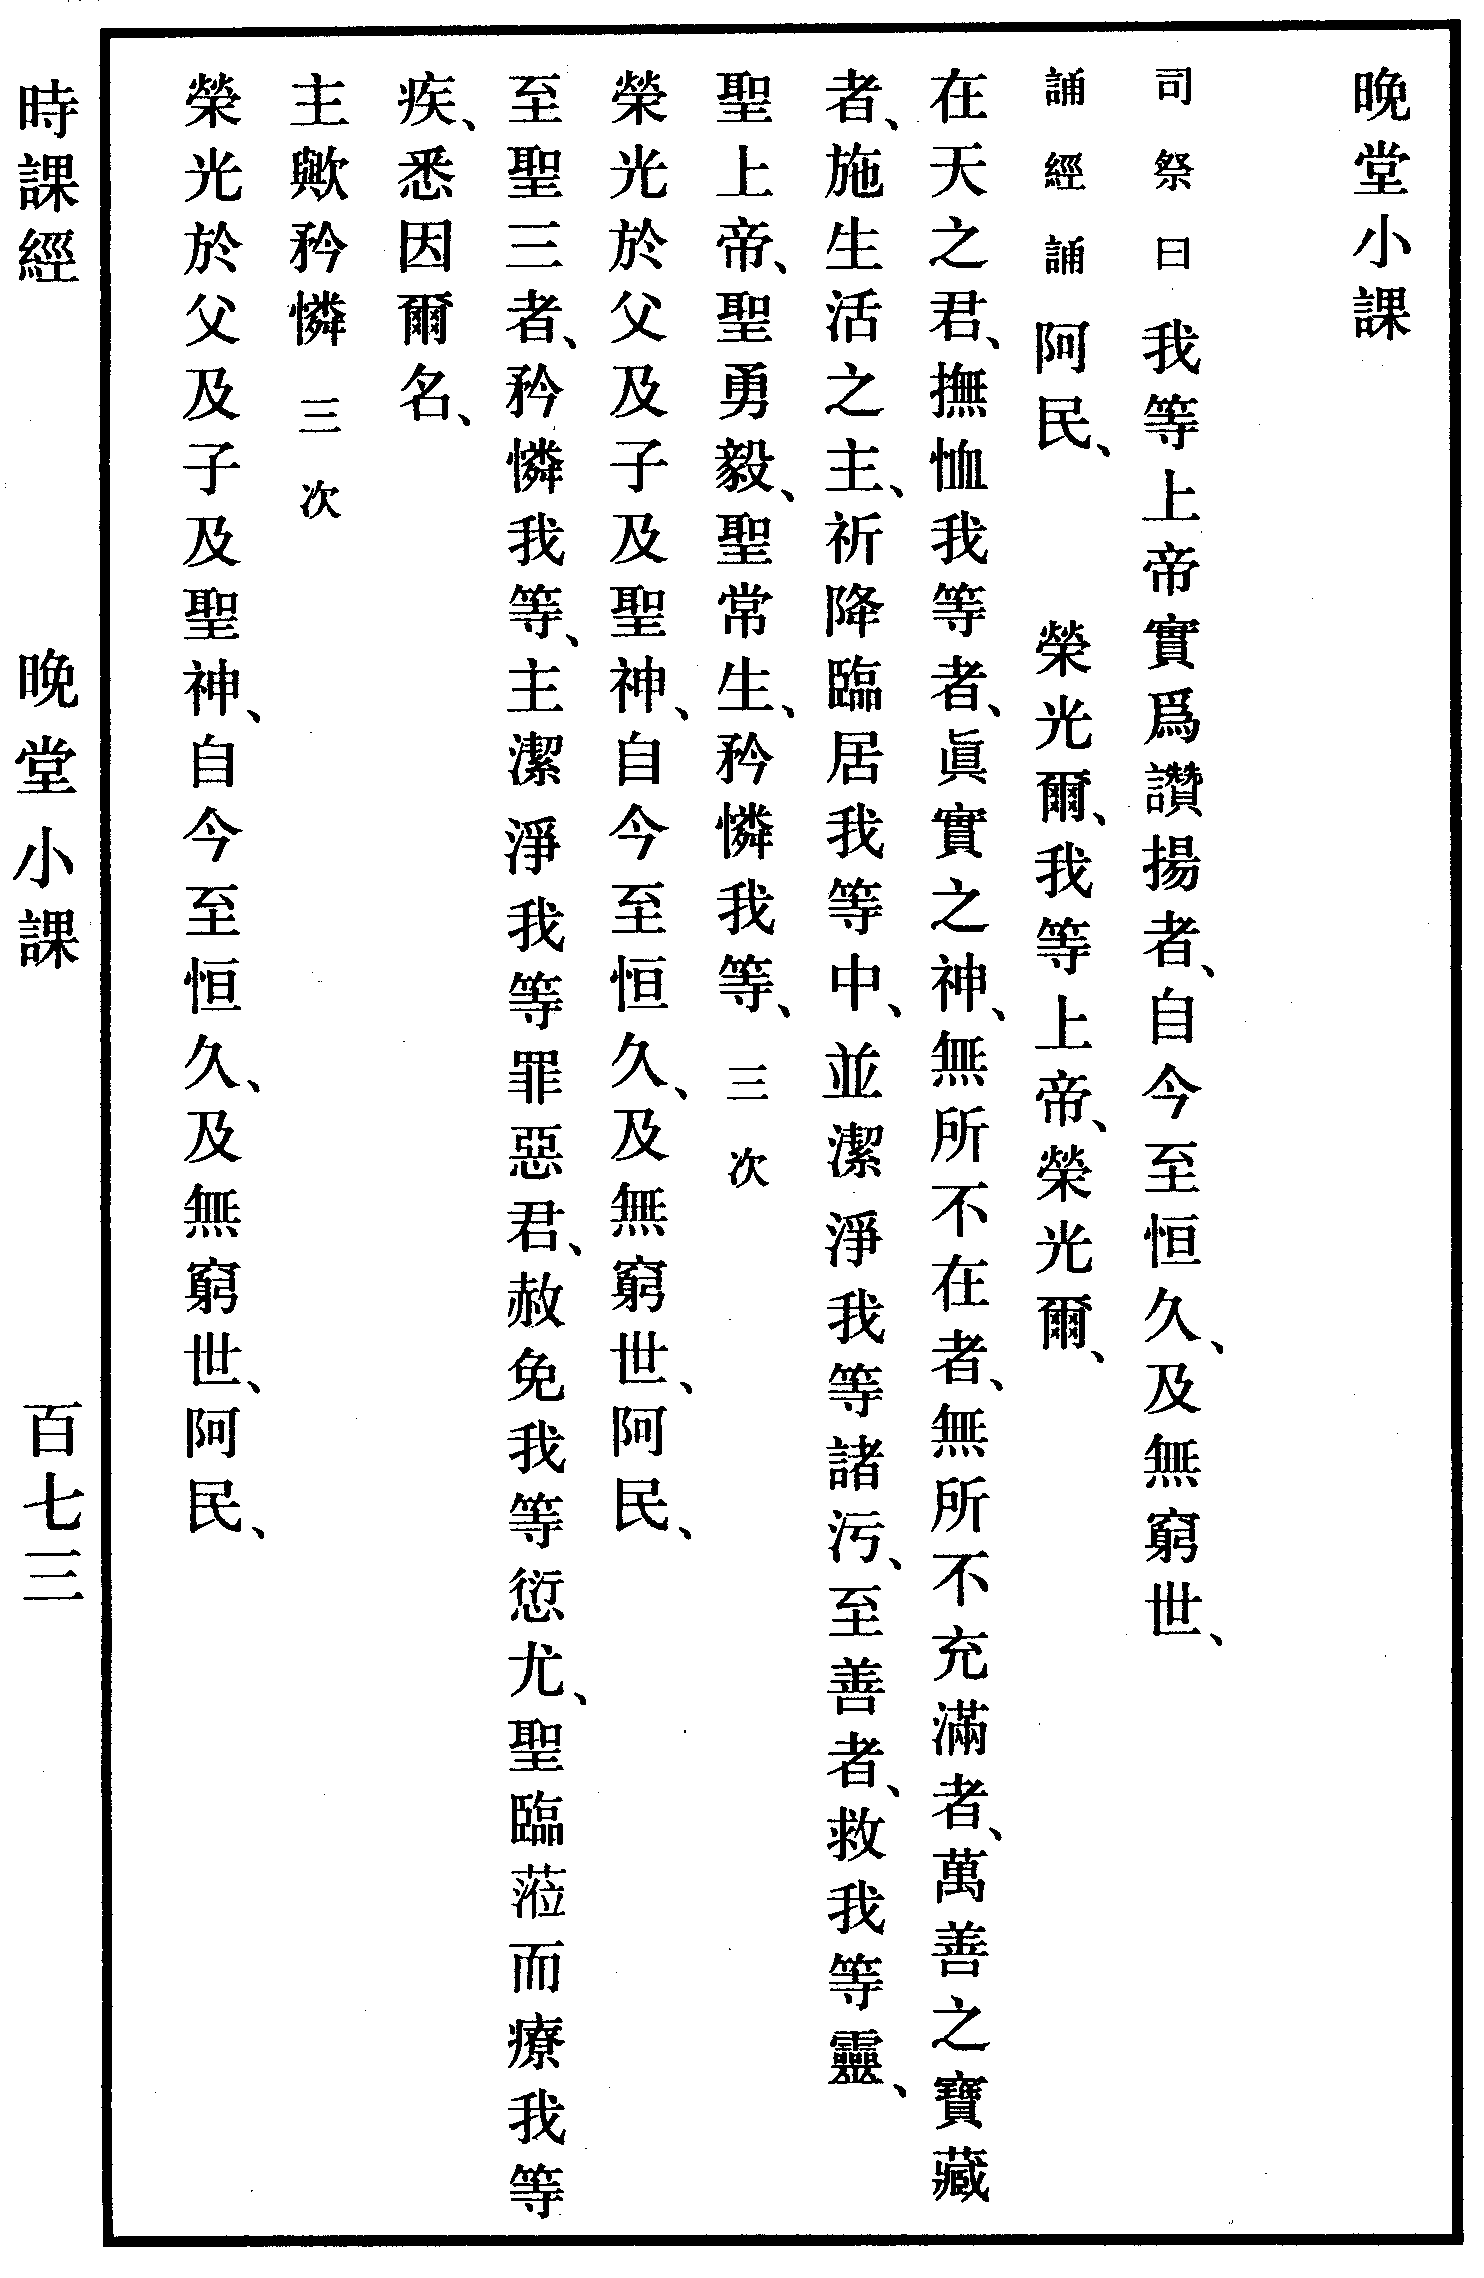 晚堂小課
司祭曰 我等上帝實爲讚揚者、自今至恒久、及無窮世、
誦經誦 阿民、 榮光爾、我等上帝、榮光爾、
在天之君、撫恤我等者、眞實之神、無所不在者、無所不充滿者、萬善之寶藏
者、施生活之主、祈降臨居我等中、並潔淨我等諸污、至善者、救我等靈、
聖上帝、聖勇毅、聖常生、矜憐我等、 三次
榮光於父及子及聖神、自今至恒久、及無窮世、阿民、
至聖三者、矜憐我等、主潔淨我等罪惡君、赦免我等愆尤、聖臨蒞而療我等
疾、悉因爾名、
主歟矜憐 三次
榮光於父及子及聖神、自今至恒久、及無窮世、阿民、
時課經 晚堂小課 百七三